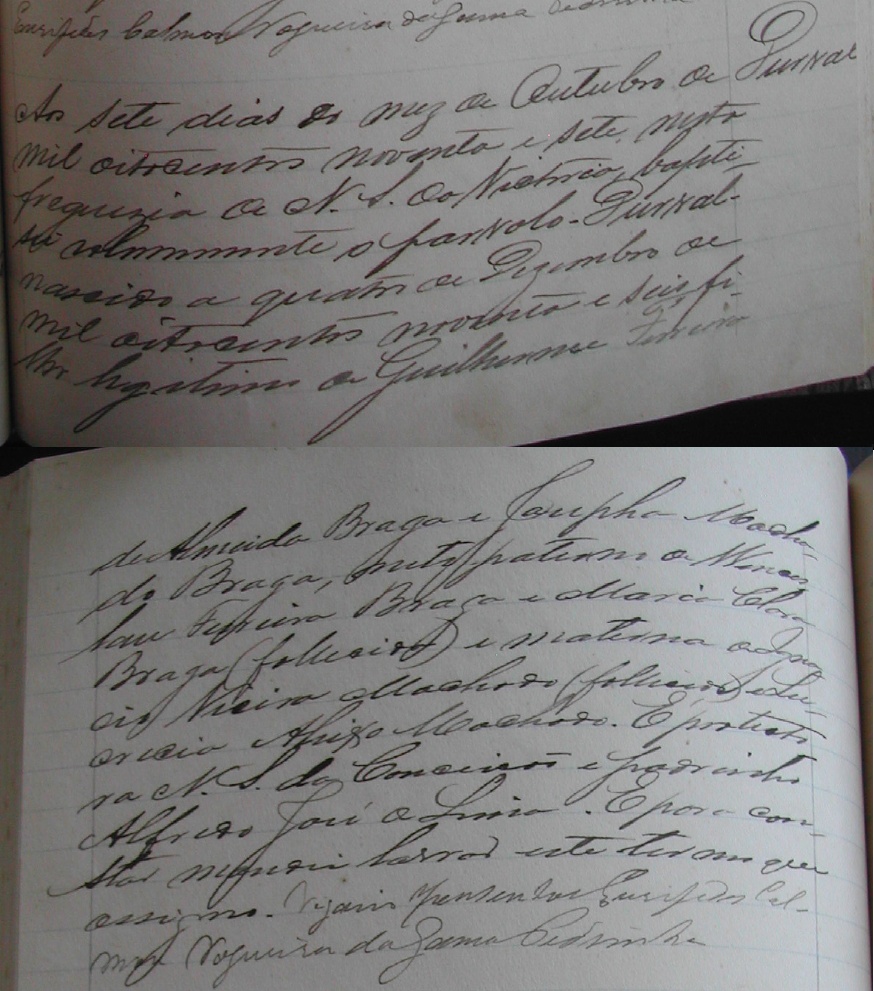 Euripides Calmon Nogueira da Gama Pedrinha
Durval
Aos sete dias do mez de Outubro de
mil oitocentos noventa e sete, nesta
freguezia de N. S. da Victoria, bapti-
sei solemnemente o parvolo - Durval -
nascido a quatro de Dezembro de
mil oitocentos noventa e seis fi-
lho legitimo de Guilherme Ferreira
de Almeida Braga e Josepha Macha-
do Braga, neto paterno de Wences
lau Ferreira Braga e Maria Clara
Braga (fallecidos) e materna de Igna
cio Vieira Machado (fallecido) e Lu-
crecia Aleixo Machado. É protecto
ra N. S. da Conceicão e padrinho
Alfredo José de Lima. E para con-
star mandei lavrar este termo que
assigno. Vigario Euripides Cal-
mon Nogueira da Gama Pedrinha